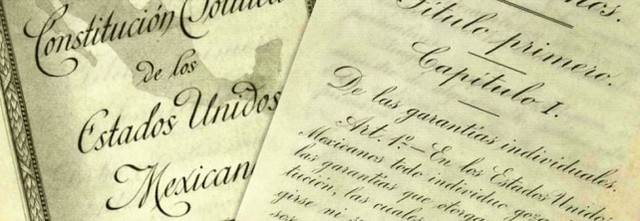 Constitución Política
de los
Estados Unidos
Mexican
nos.
Título primero.
Capítulo I.
De las garantías individuales.
Art. 1º.—En los Estados Unidos
Mexicanos todo individuo goza
las garantías que otorga
tución, las cuales
girse ni